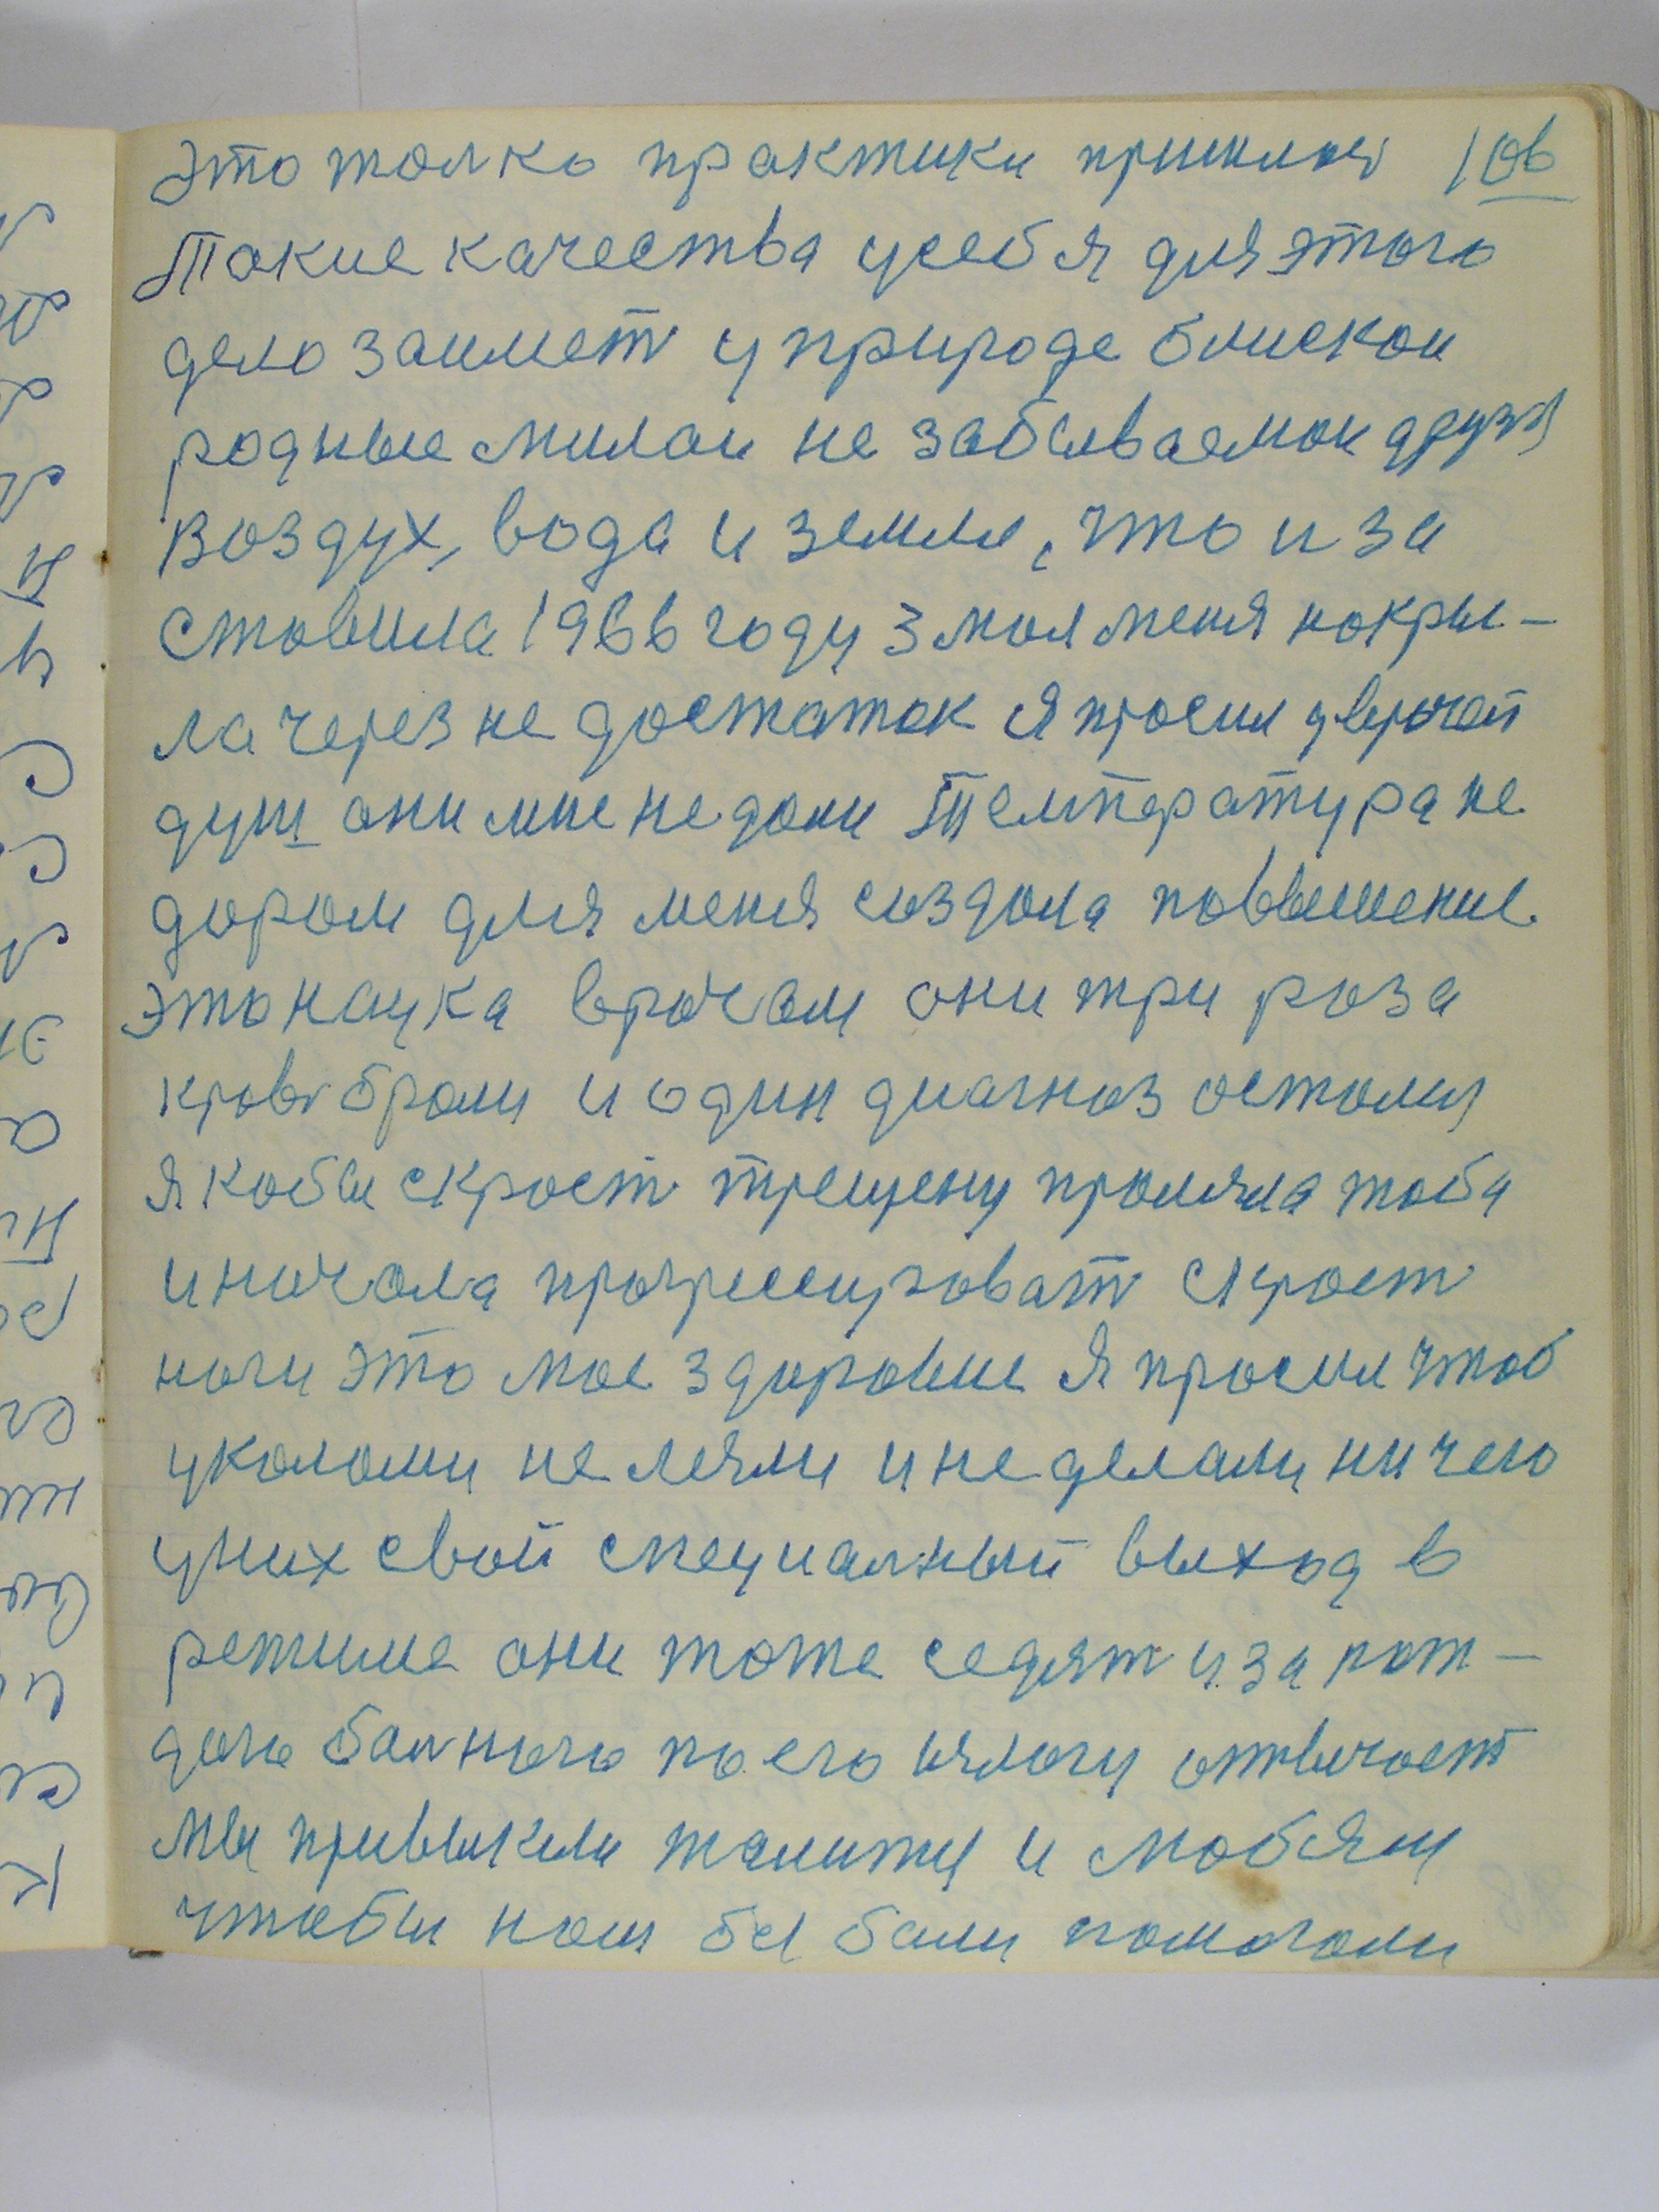 это толко практики пришлоя 106
Такие качества усебя для этого
дело заимет у природе блиской
родные милои не забываемои друзя
воздух, вода и земля, что и за
ставила 1966 году 3 мая меня накры-
ла через не достаток я просил уврачей
душ они мне не дали Температура не
даром для меня создала поввышение
это наука врачам они три роза
кровь брали и один диагноз остался
якобы скрозь трещену
и начала прогрессировать скрозь
ноги это мое здоровие я просил чтоб
уколоми не и не делали ни чего
у них свой специалный выход в
режиме они тоже седят и за кож-
дого балного по его отвечает
мы привыкли и любям
чтобы нам бы бали помогали